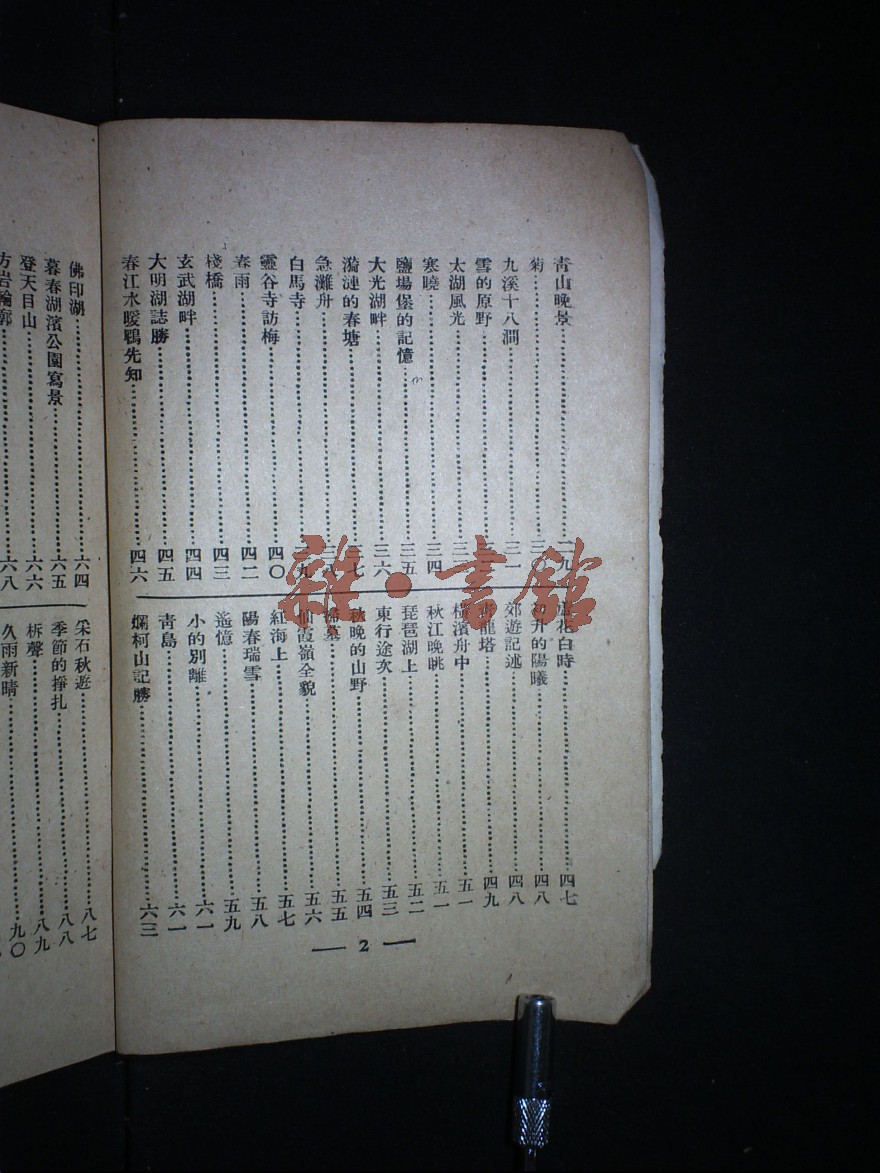 青山晚景……二九
菊……三〇
九溪十八澗……三一
雪的原野
太湖風光
寒曉……三四
鹽場堡的記憶……三五
大光湖畔……三六
漪漣的春塘……三七
急灘舟……三八
白馬寺……三九
靈谷寺訪梅……四〇
春雨……四二
棧橋……四三
玄武湖畔……四四
大明湖誌勝……四五
春江水暖鴨先知……四六
蘆花白時……四七
初升的陽曦……四八
郊遊記述……四八
龍塔……四九
橫濱舟中……五一
秋江晚眺……五一
琵琶湖上……五二
東行途次……五三
秋晚的山野……五四
掃墓……五五
仙霞嶺全貌……五六
紅海上……五七
陽春瑞雪……五八
遙憶……五九
小的別離……六一
青島……六一
爛柯山記勝……六三
— 2 —
佛印湖……六四
暮春湖濱公園寫景……六五
登天目山……六六
方岩輪廓……六八
采石秋遊……八七
季節的掙扎……八八
柝聲……八九
久雨新晴……九〇
雜·書館